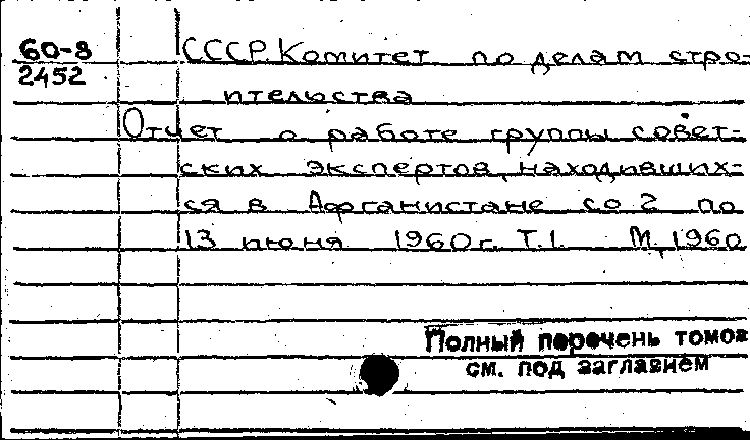 60-8
2452
СССР. Комитет по делам стро-
ительства
Отчет о работе группы совет-
ских экспертов, находивших-
ся в Афганистане со 2 по
13 июня 1960 г. Т.1. М, 1960
Полный перечень томов
см. под заглавием